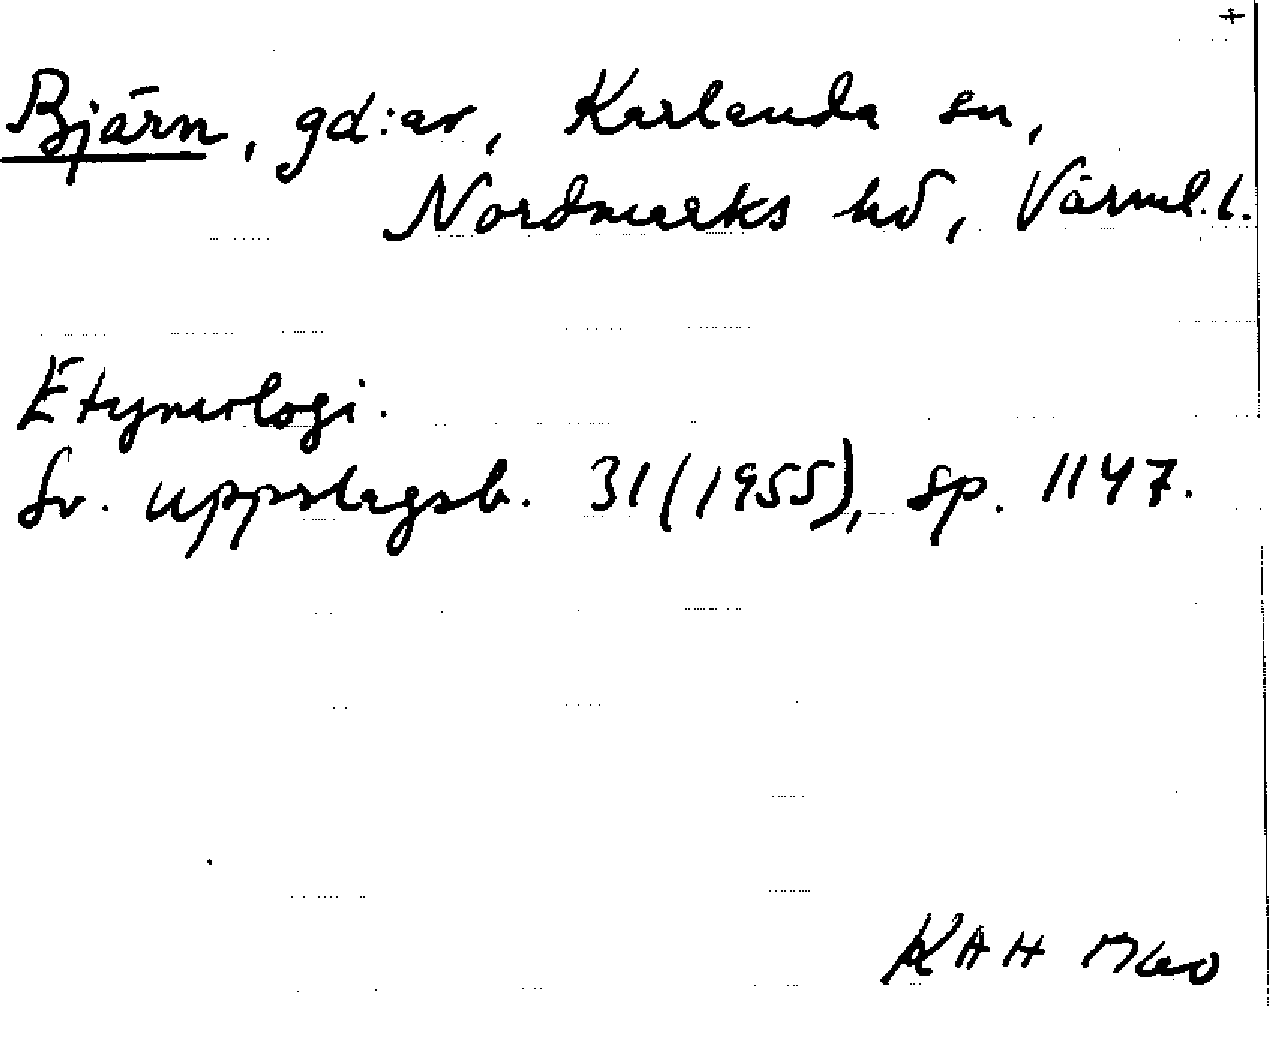 +
Bjärn, gd:ar, Karlanda sn,
Nordmarks hd, Värml.l.
Etymologi.
Sv. uppslagsb. 31 (1955), sp. 1147.
KAH